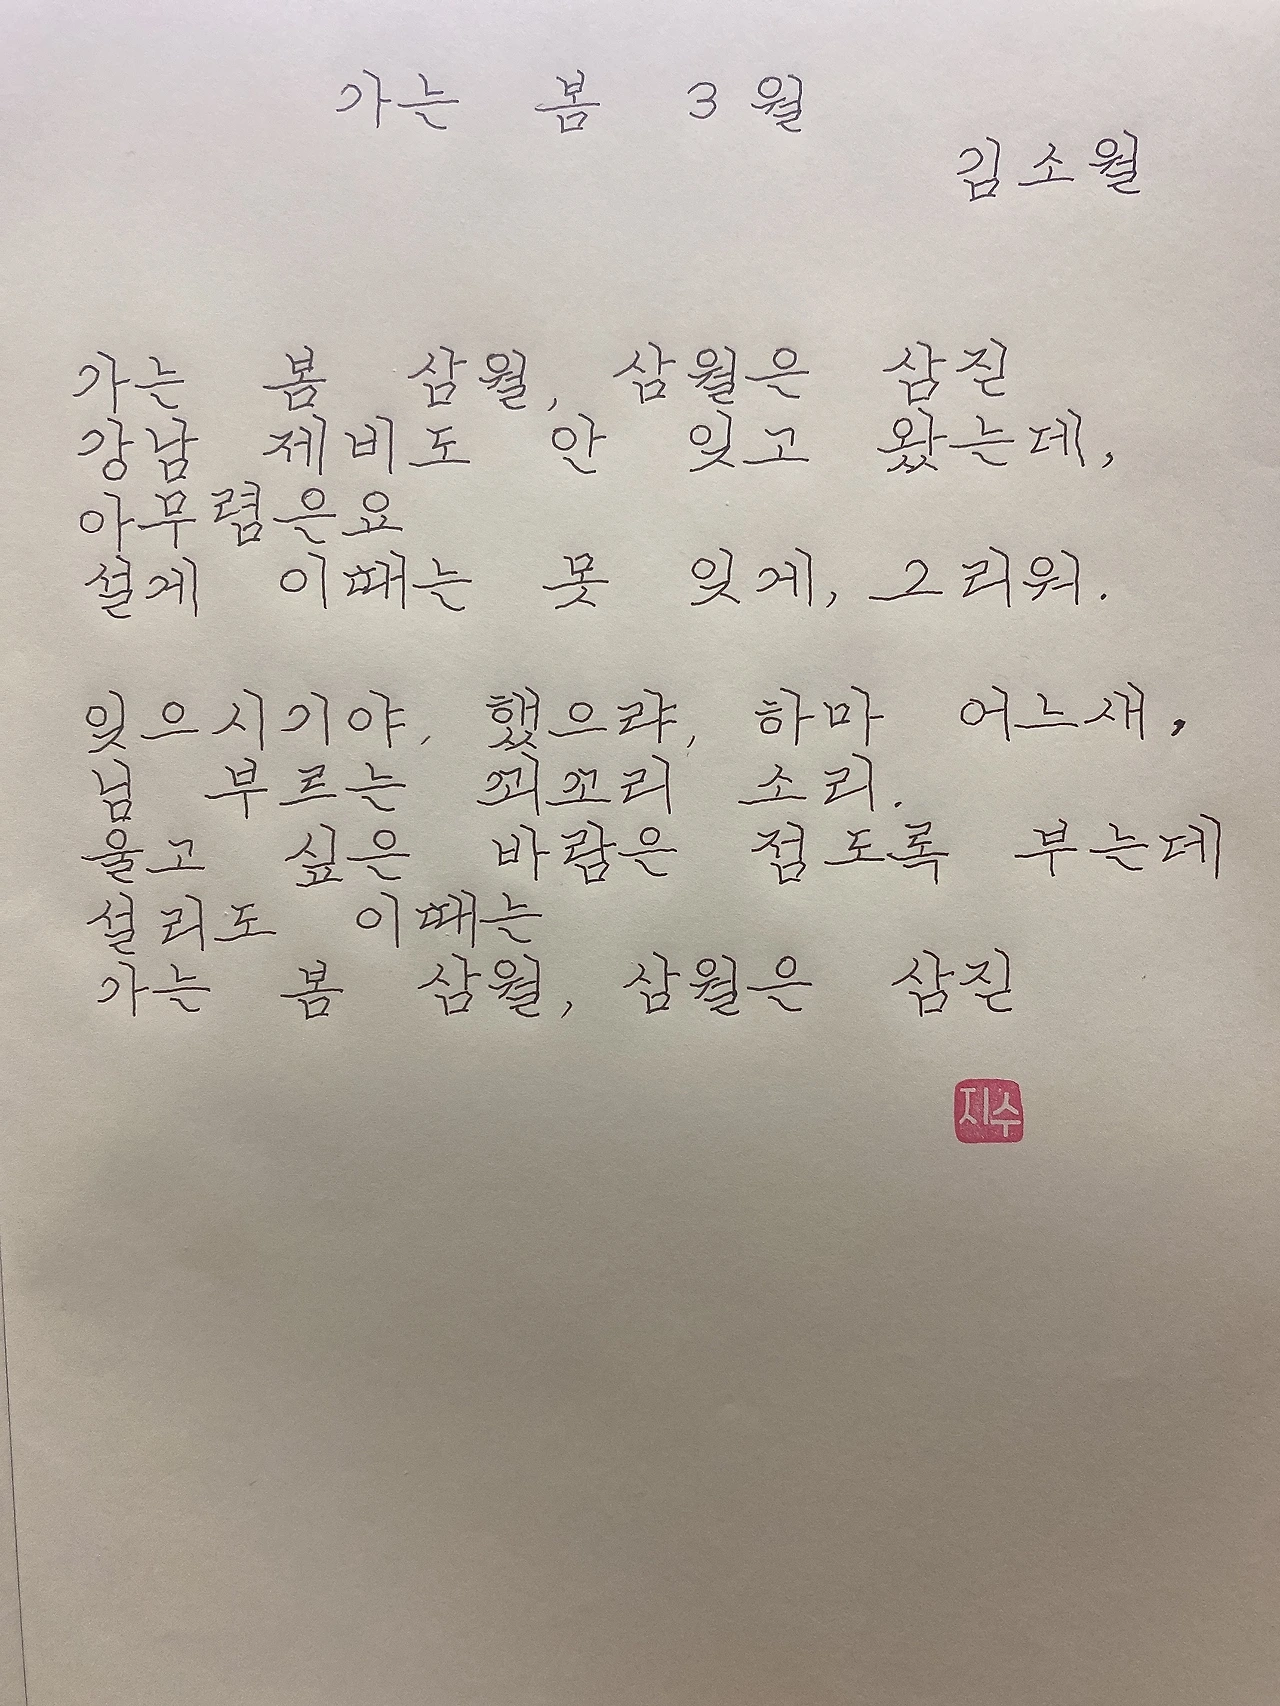 가는 봄 3월
김소월
가는 봄 삼월, 삼월은 삼짇
강남 제비도 안 잊고 왔는데,
아무렴은요
설게 이때는 못 잊게, 그리워.
잊으시기야, 했으랴, 하마 어느새,
님 부르는 꾀꼬리 소리.
울고 싶은 바람은 점도록 부는데
설리도 이때는
가는 봄 삼월, 삼월은 삼짇
지수